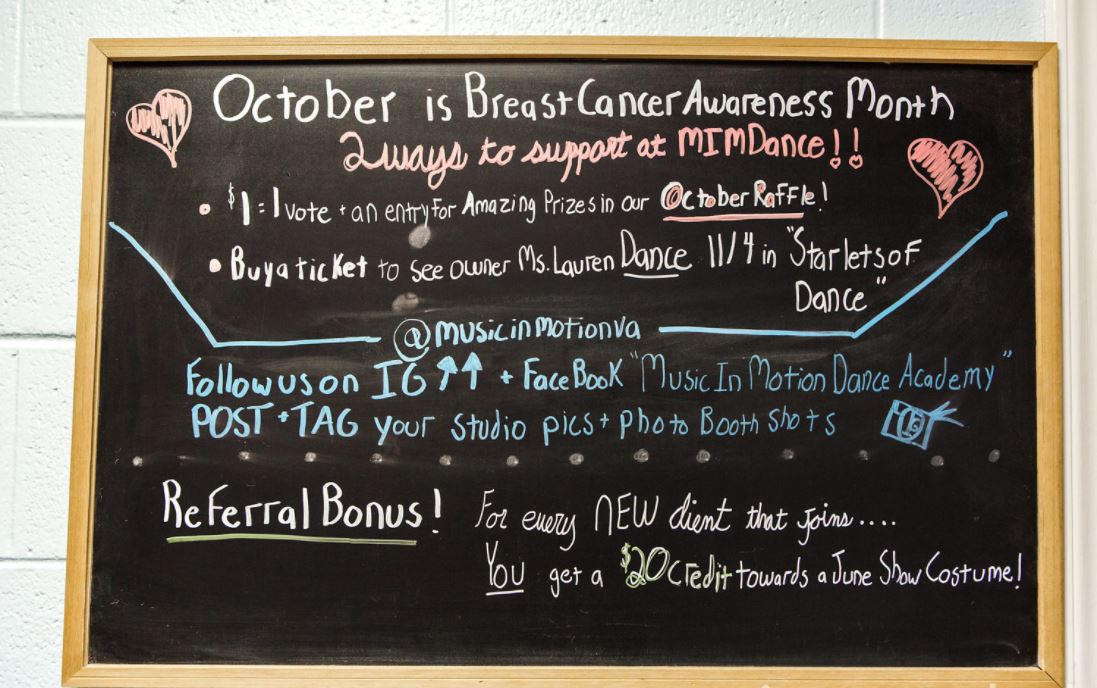 October is Breast Cancer Awareness Month
2 ways to support at MIMDance!!
• $1 = 1 vote + an entry for Amazing Prizes in our October Raffle!
• Buy a ticket to see owner Ms. Lauren Dance 11/4 in "Starlets of
Dance"
@musicinmotionva
Follow us on IG ↑↑ + FaceBook "Music In Motion Dance Academy"
POST + TAG your studio pics + photo Booth shots
Referral Bonus! For every NEW client that joins....
You get a $20 Credit towards a June Show Costume!